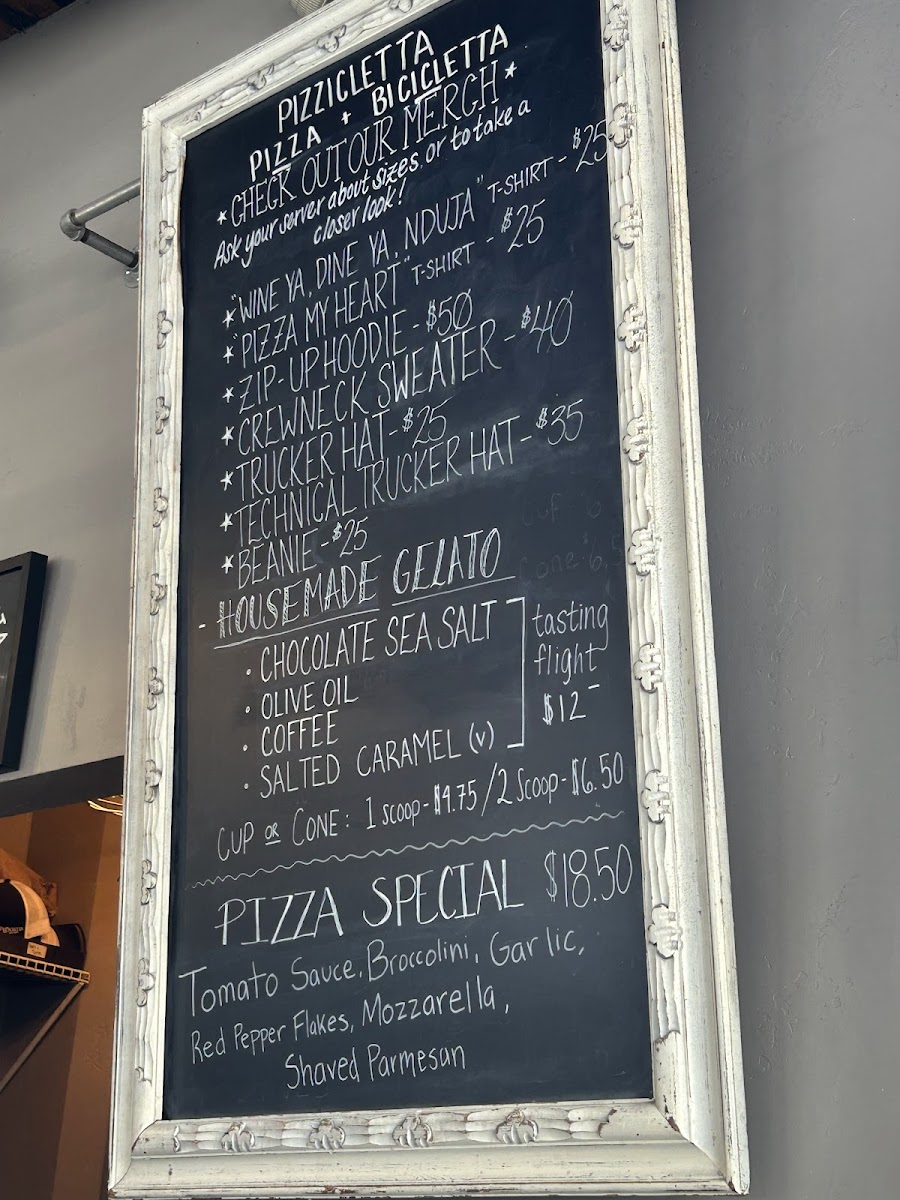 PIZZICLETTA
PIZZA + BICICLETTA
*CHECK OUT OUR MERCH*
Ask your server about sizes, or to take a
closer look!
* "WINE YA, DINE YA, NDUJA" T-SHIRT - $25
* "PIZZA MY HEART" T-SHIRT - $25
* ZIP-UP HOODIE - $50
* CREWNECK SWEATER - $40
* TRUCKER HAT - $25
* TECHNICAL TRUCKER HAT - $35
* BEANIE - $25
- HOUSEMADE GELATO
• CHOCOLATE SEA SALT
• OLIVE OIL
• COFFEE
• SALTED CARAMEL (v)
tasting
flight
$12-
CUP OR CONE: 1 scoop - $4.75 / 2 Scoop - $6.50
PIZZA SPECIAL $18.50
Tomato Sauce, Broccolini, Garlic,
Red Pepper Flakes, Mozzarella,
Shaved Parmesan